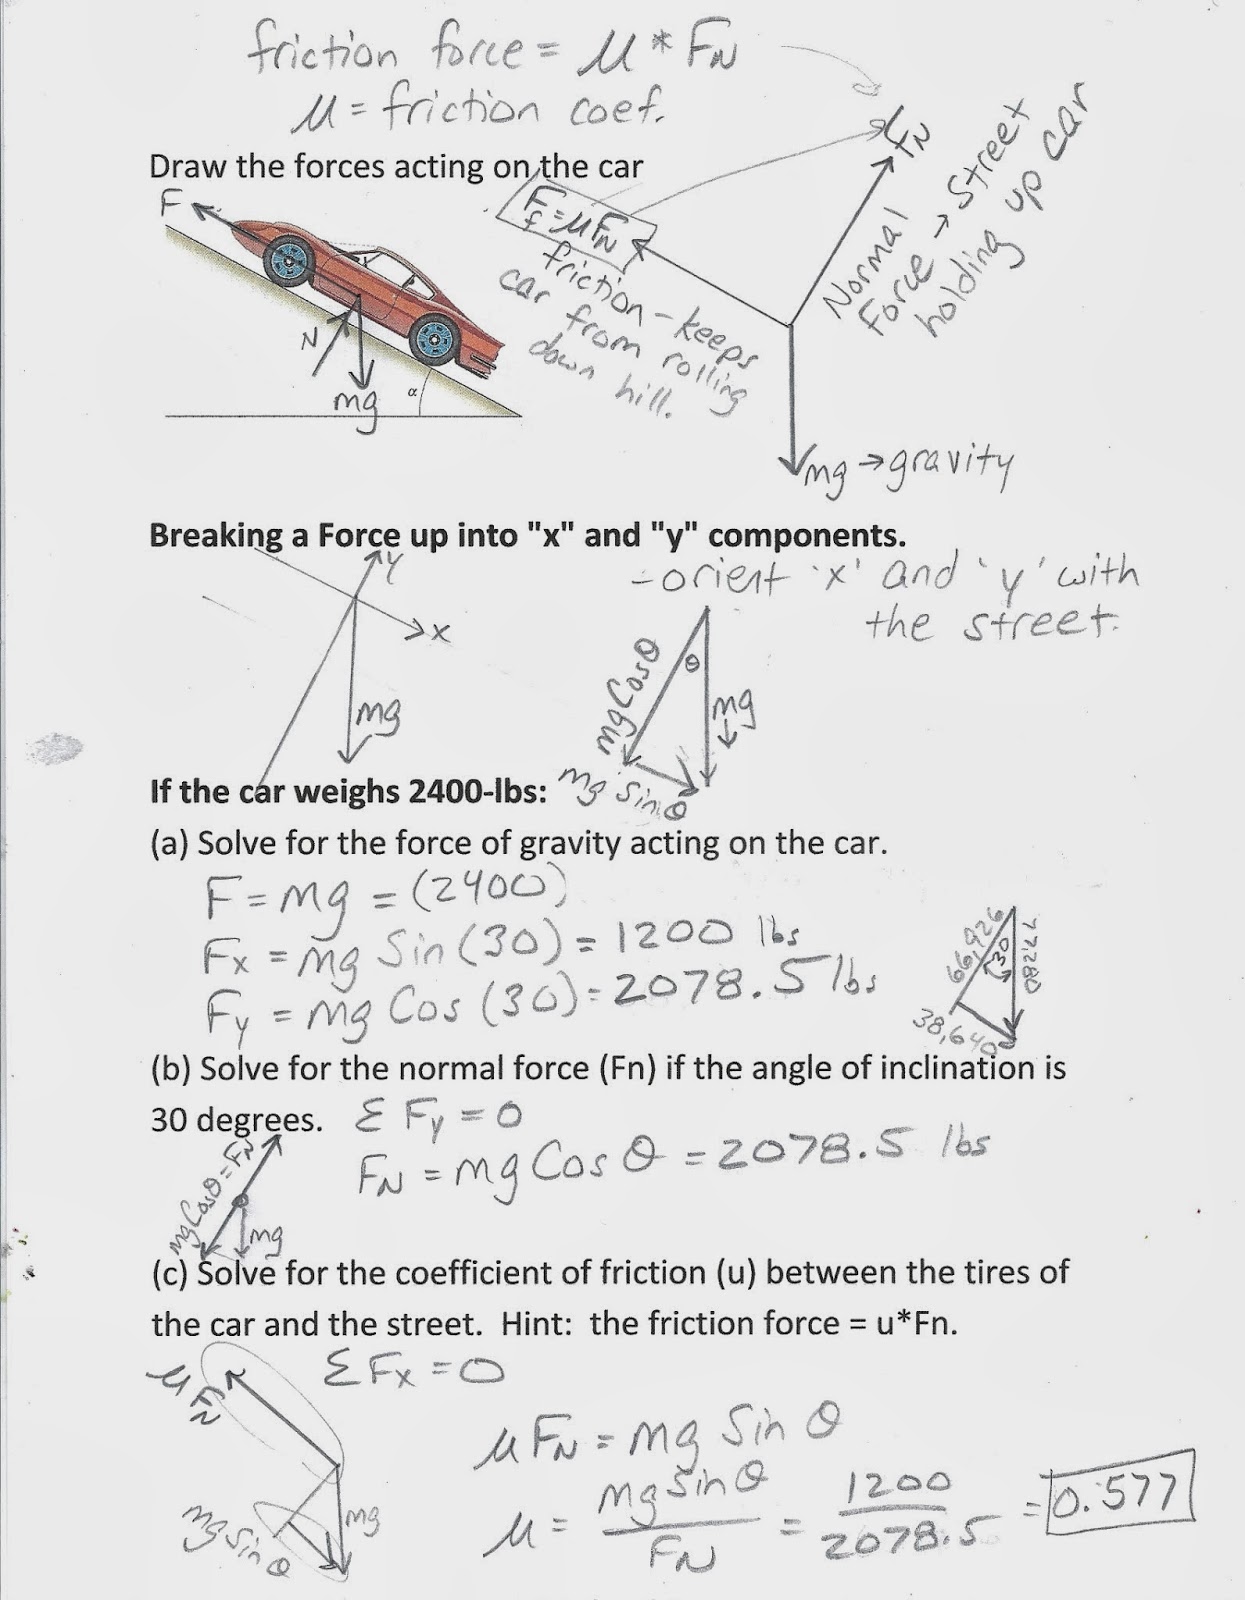 friction force = μ * FN
μ = friction coef.
Draw the forces acting on the car
F
N
mg
α
Ff = μFN
friction - keeps
car from rolling
down hill.
FN
Normal
Force → Street
holding up car
mg → gravity
Breaking a Force up into "x" and "y" components.
- orient 'x' and 'y' with
the street.
y
x
mg
mgCosθ
θ
mg
mg Sinθ
If the car weighs 2400-lbs:
(a) Solve for the force of gravity acting on the car.
F = mg = (2400)
Fx = mg Sin (30) = 1200 lbs
Fy = mg Cos (30) = 2078.5 lbs
66,926
30
77280
38,640
(b) Solve for the normal force (Fn) if the angle of inclination is
30 degrees.
Σ Fy = 0
FN = mg Cos θ = 2078.5 lbs
mgCosθ = FN
mg
(c) Solve for the coefficient of friction (u) between the tires of
the car and the street. Hint: the friction force = u*Fn.
Σ Fx = 0
μ FN
mg
mg Sin θ
μ FN = mg Sin θ
μ = mg Sin θ / FN = 1200 / 2078.5 = 0.577